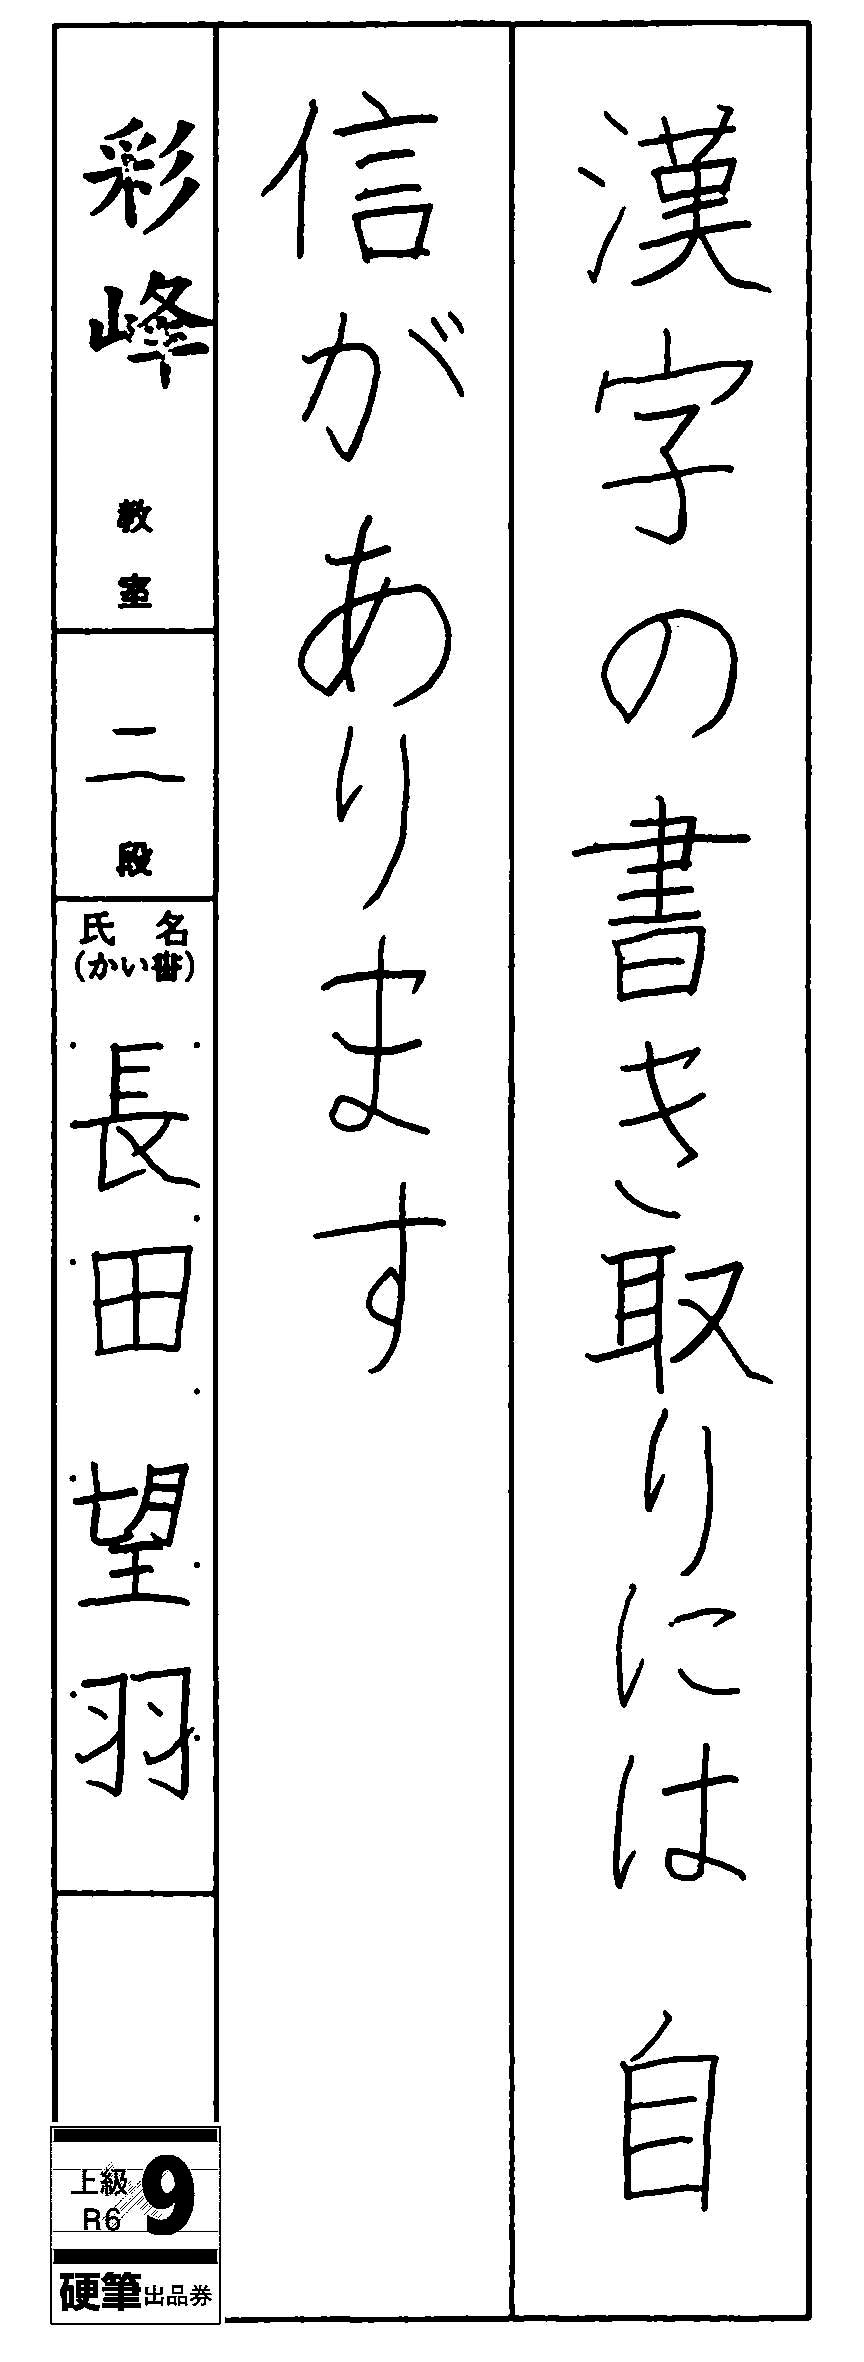 漢字の書き取りには 自
信があります
彩峰 教室
二 段
氏名
(かい書)
長田望羽
上級 9
R6
硬筆出品券